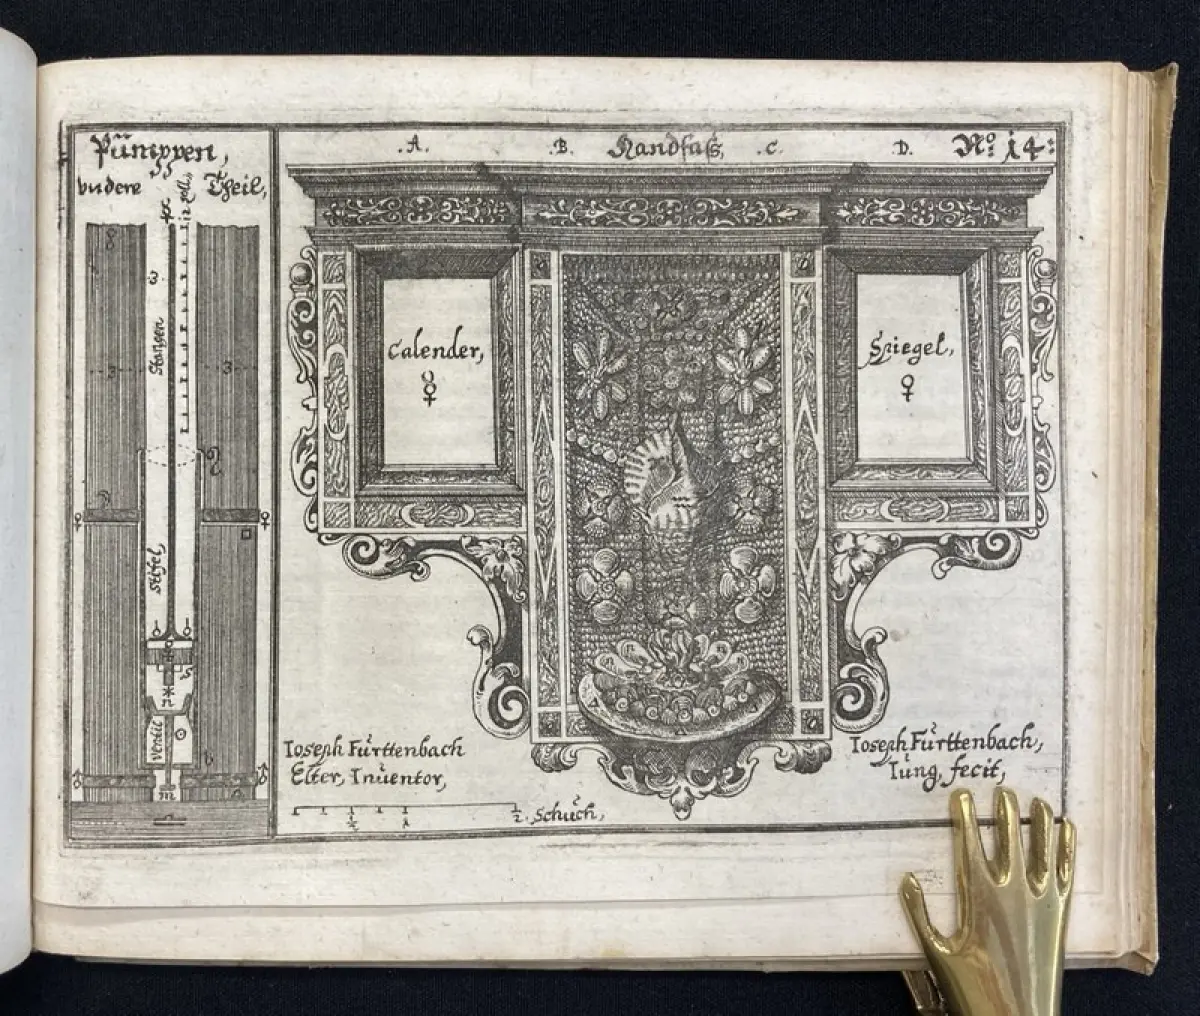 Pümppen,
vndere Theil,
12 zoll,
Stangen
3
3
Stifel
n
Ventil
m
.A. .B. Handfaß, .C. .D. No: 14:
Calender,
☿
Spiegel,
♀
Ioseph Fürttenbach
Elter, Inuentor,
½ Schuch,
Ioseph Fürttenbach,
Iung, fecit,